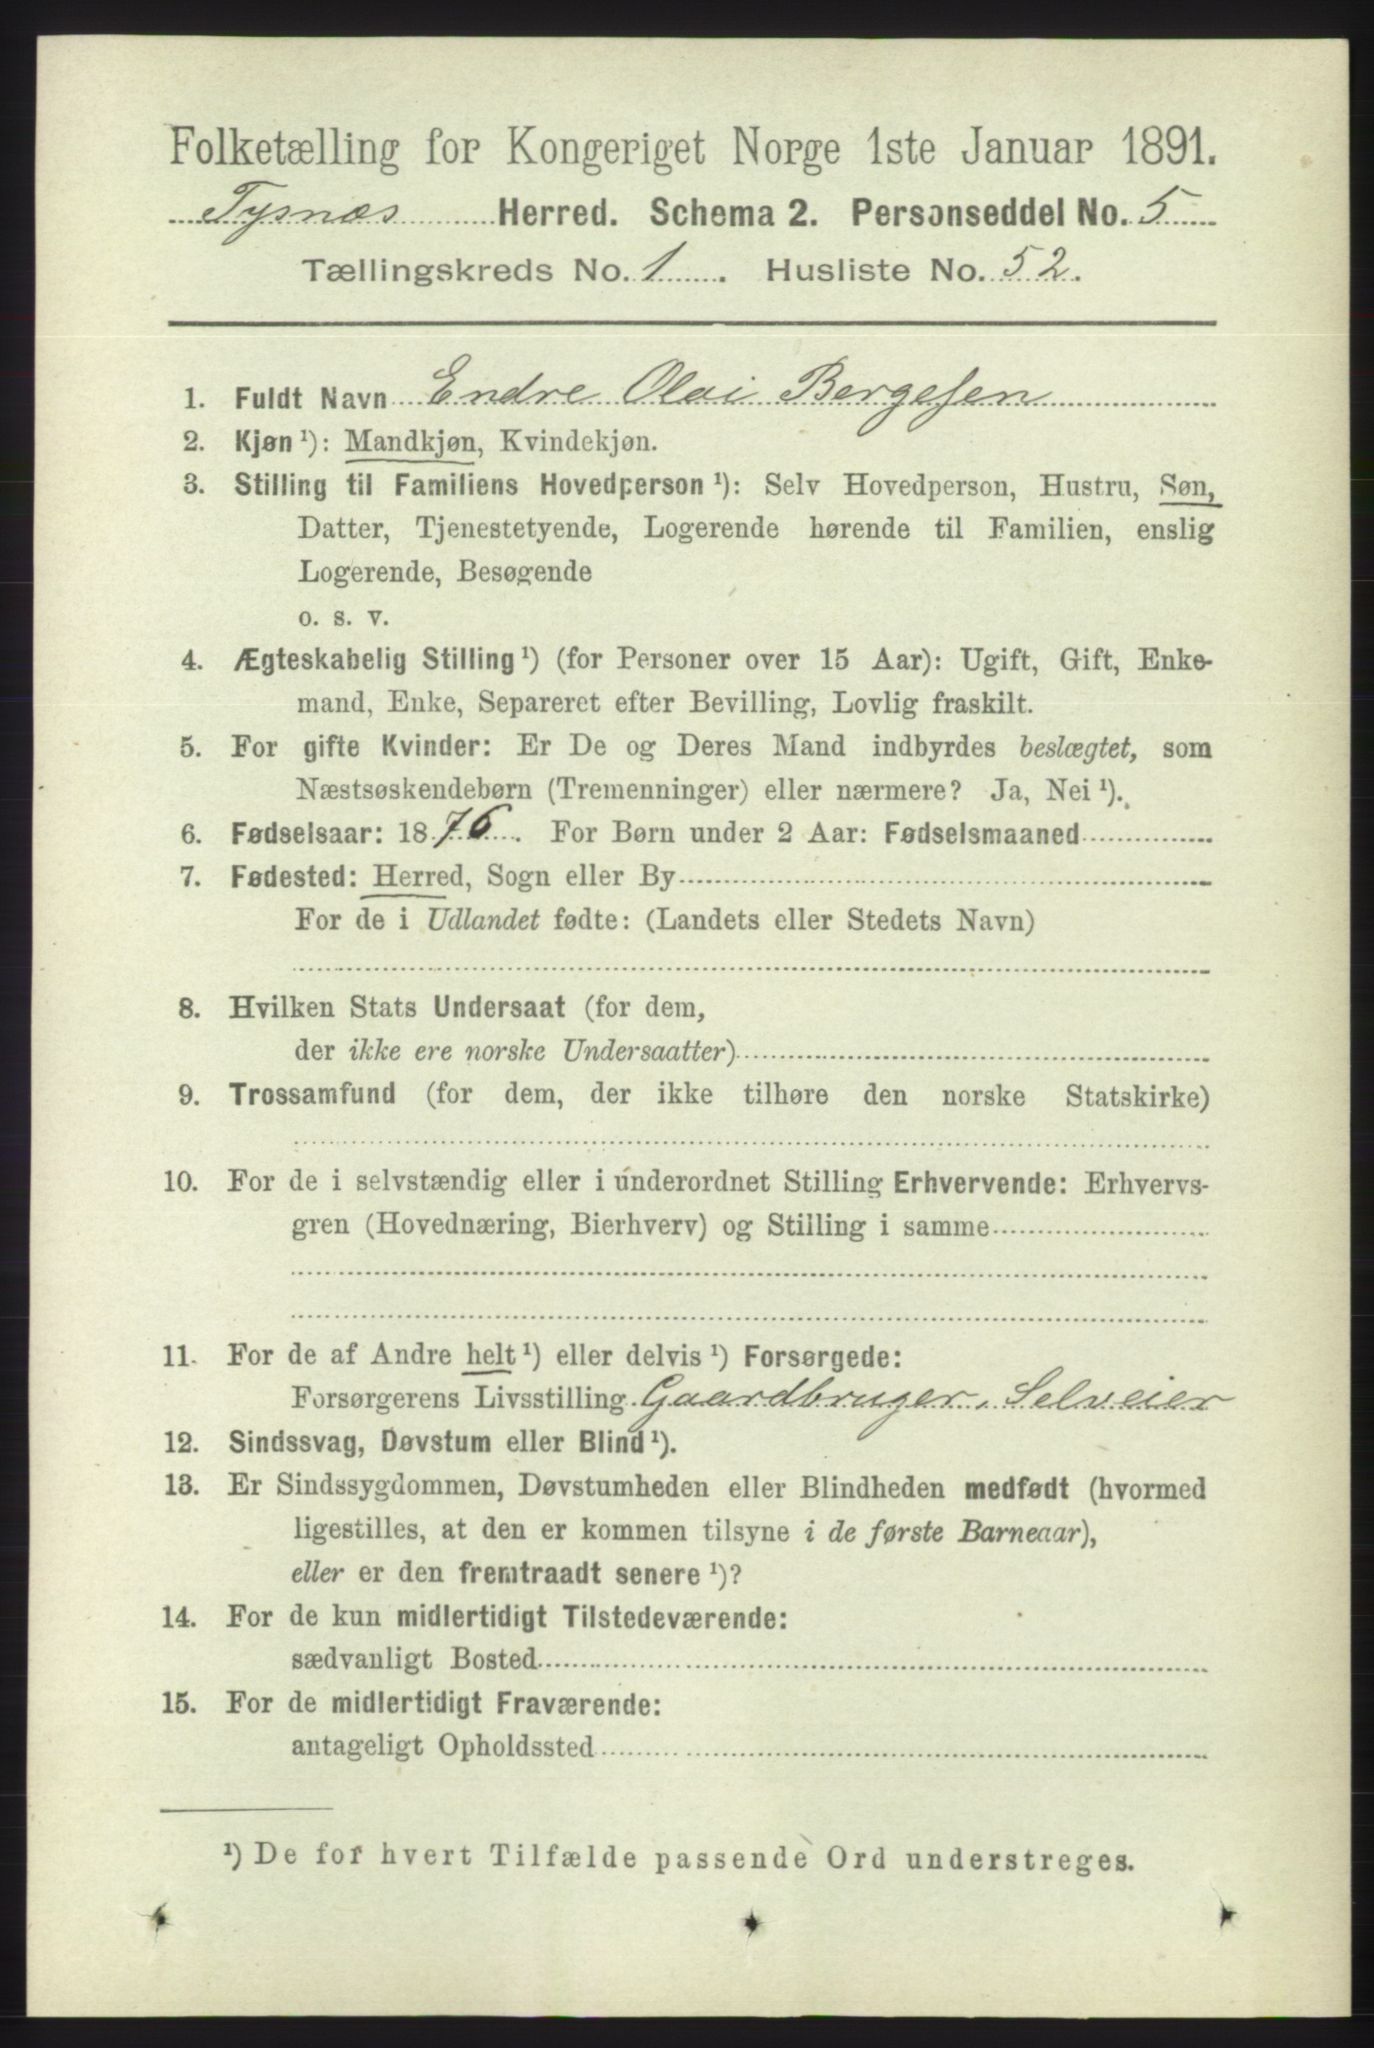 Folketælling for Kongeriget Norge 1ste Januar 1891.
Tysnæs Herred. Schema 2. Personseddel No. 5
Tællingskreds No. 1. Husliste No. 52.
1. Fuldt Navn Endre Olai Bergesen
2. Kjøn ¹): Mandkjøn, Kvindekjøn.
3. Stilling til Familiens Hovedperson ¹): Selv Hovedperson, Hustru, Søn,
Datter, Tjenestetyende, Logerende hørende til Familien, enslig
Logerende, Besøgende
o. s. v.
4. Ægteskabelig Stilling ¹) (for Personer over 15 Aar): Ugift, Gift, Enke-
mand, Enke, Separeret efter Bevilling, Lovlig fraskilt.
5. For gifte Kvinder: Er De og Deres Mand indbyrdes beslægtet, som
Næstsøskendebørn (Tremenninger) eller nærmere? Ja, Nei ¹).
6. Fødselsaar: 1876. For Børn under 2 Aar: Fødselsmaaned
7. Fødested: Herred, Sogn eller By
For de i Udlandet fødte: (Landets eller Stedets Navn)
8. Hvilken Stats Undersaat (for dem,
der ikke ere norske Undersaatter)
9. Trossamfund (for dem, der ikke tilhøre den norske Statskirke)
10. For de i selvstændig eller i underordnet Stilling Erhvervende: Erhvervs-
gren (Hovednæring, Bierhverv) og Stilling i samme
11. For de af Andre helt ¹) eller delvis ¹) Forsørgede:
Forsørgerens Livsstilling Gaardbruger, Selveier
12. Sindssvag, Døvstum eller Blind ¹).
13. Er Sindssygdommen, Døvstumheden eller Blindheden medfødt (hvormed
ligestilles, at den er kommen tilsyne i de første Barneaar),
eller er den fremtraadt senere ¹)?
14. For de kun midlertidigt Tilstedeværende:
sædvanligt Bosted
15. For de midlertidigt Fraværende:
antageligt Opholdssted
¹) De for hvert Tilfælde passende Ord understreges.